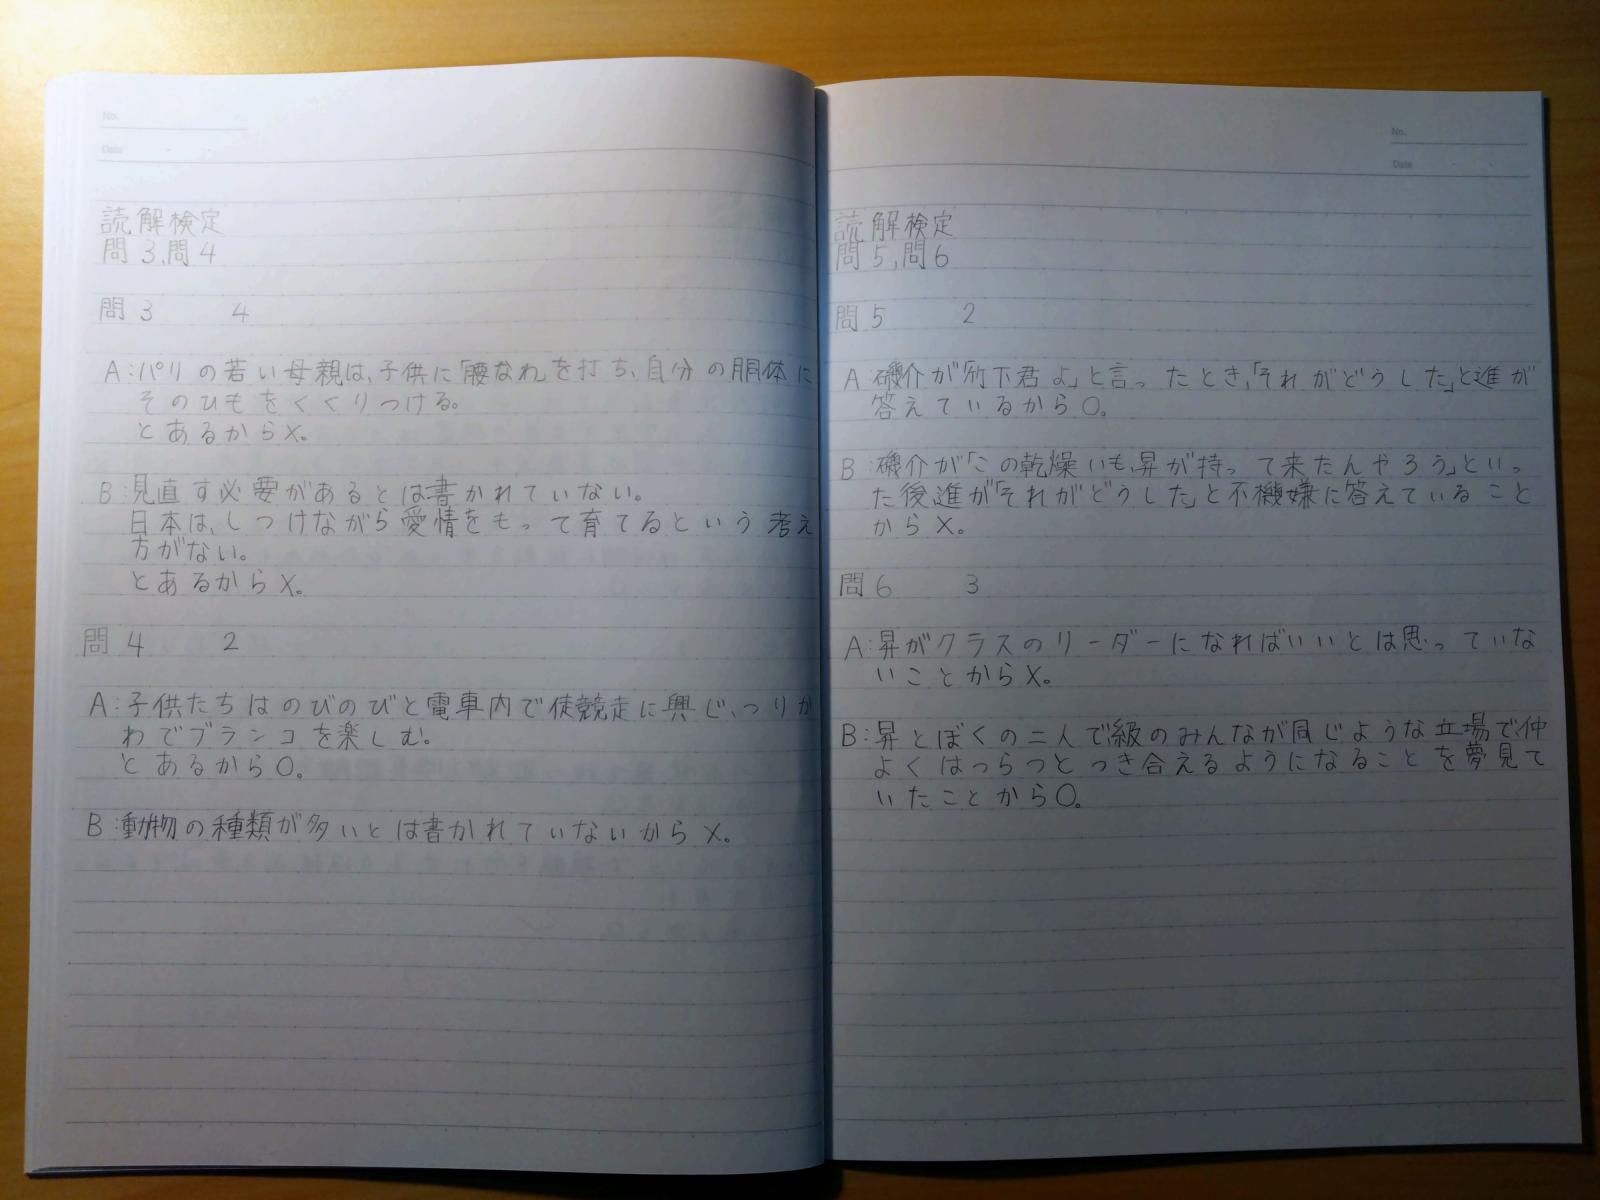 No.
Date
読解検定
問3、問4
問3 4
A:パリの若い母親は、子供に「腰なわ」を打ち、自分の胴体に
そのひもをくくりつける。
とあるから×。
B:見直す必要があるとは書かれていない。
日本は、しつけながら愛情をもって育てるという考え
方がない。
とあるから×。
問4 2
A:子供たちはのびのびと電車内で徒競走に興じ、つりか
わでブランコを楽しむ。
とあるから〇。
B:動物の種類が多いとは書かれていないから×。
No.
Date
読解検定
問5、問6
問5 2
A:磯介が「竹下君よ」と言ったとき、「それがどうした」と進が
答えているから〇。
B:磯介が「この乾燥いも、昇が持って来たんやろう」といっ
た後、進が「それがどうした」と不機嫌に答えていること
から×。
問6 3
A:昇がクラスのリーダーになればいいとは思っていな
いことから×。
B:昇とぼくの二人で級のみんなが同じような立場で、仲
よくはつらつとつき合えるようになることを夢見て
いたことから〇。